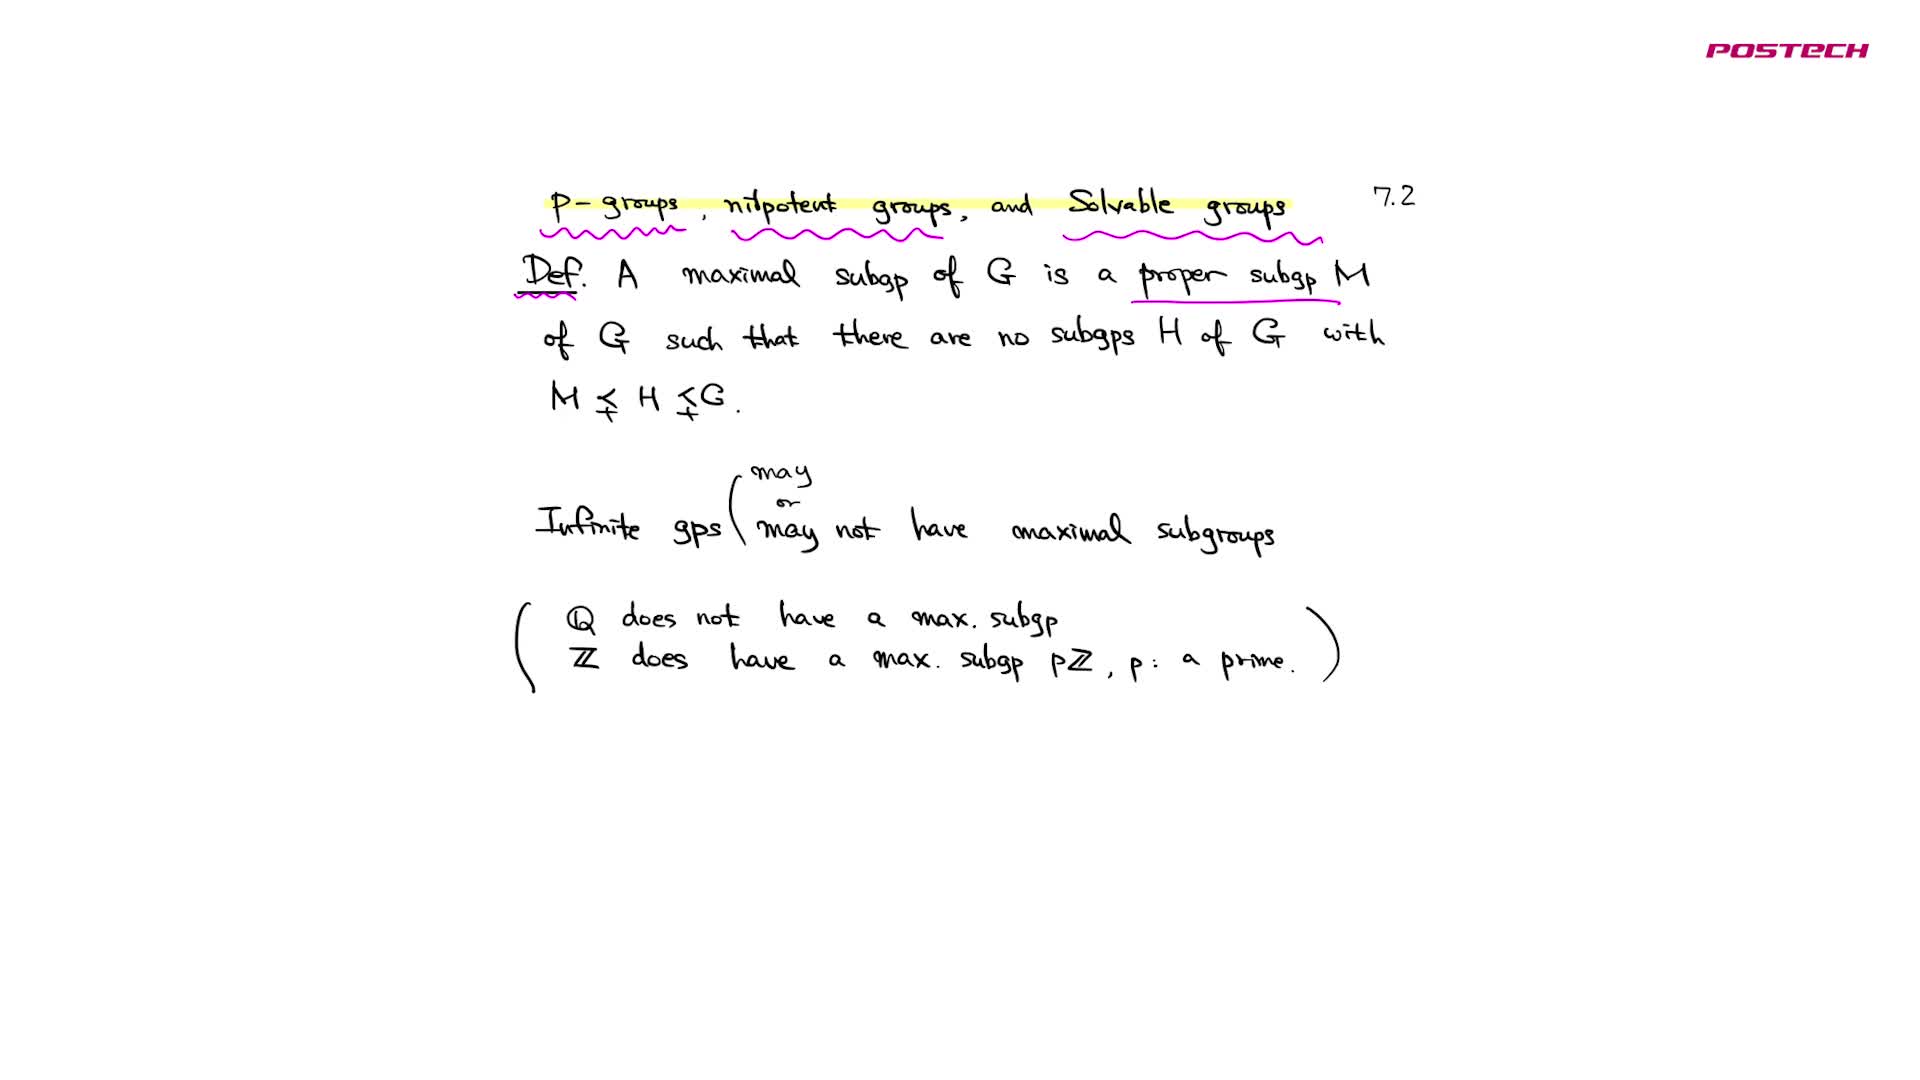 POSTECH
p-groups, nilpotent groups, and Solvable groups 7.2
Def. A maximal subgp of G is a proper subgp M
of G such that there are no subgps H of G with
M ≨ H ≨ G.
may
or
Infinite gps ( may not have maximal subgroups
( ℚ does not have a max. subgp
ℤ does have a max. subgp pℤ, p: a prime. )